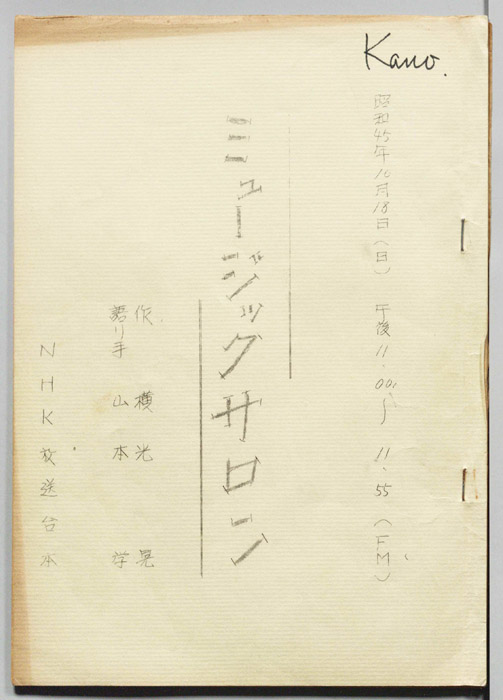 Kano.
昭和45年10月18日(日) 午後11.00~11.55(FM)
ミュージックサロン
作 横光 晃
語り手 山本 学
NHK放送台本